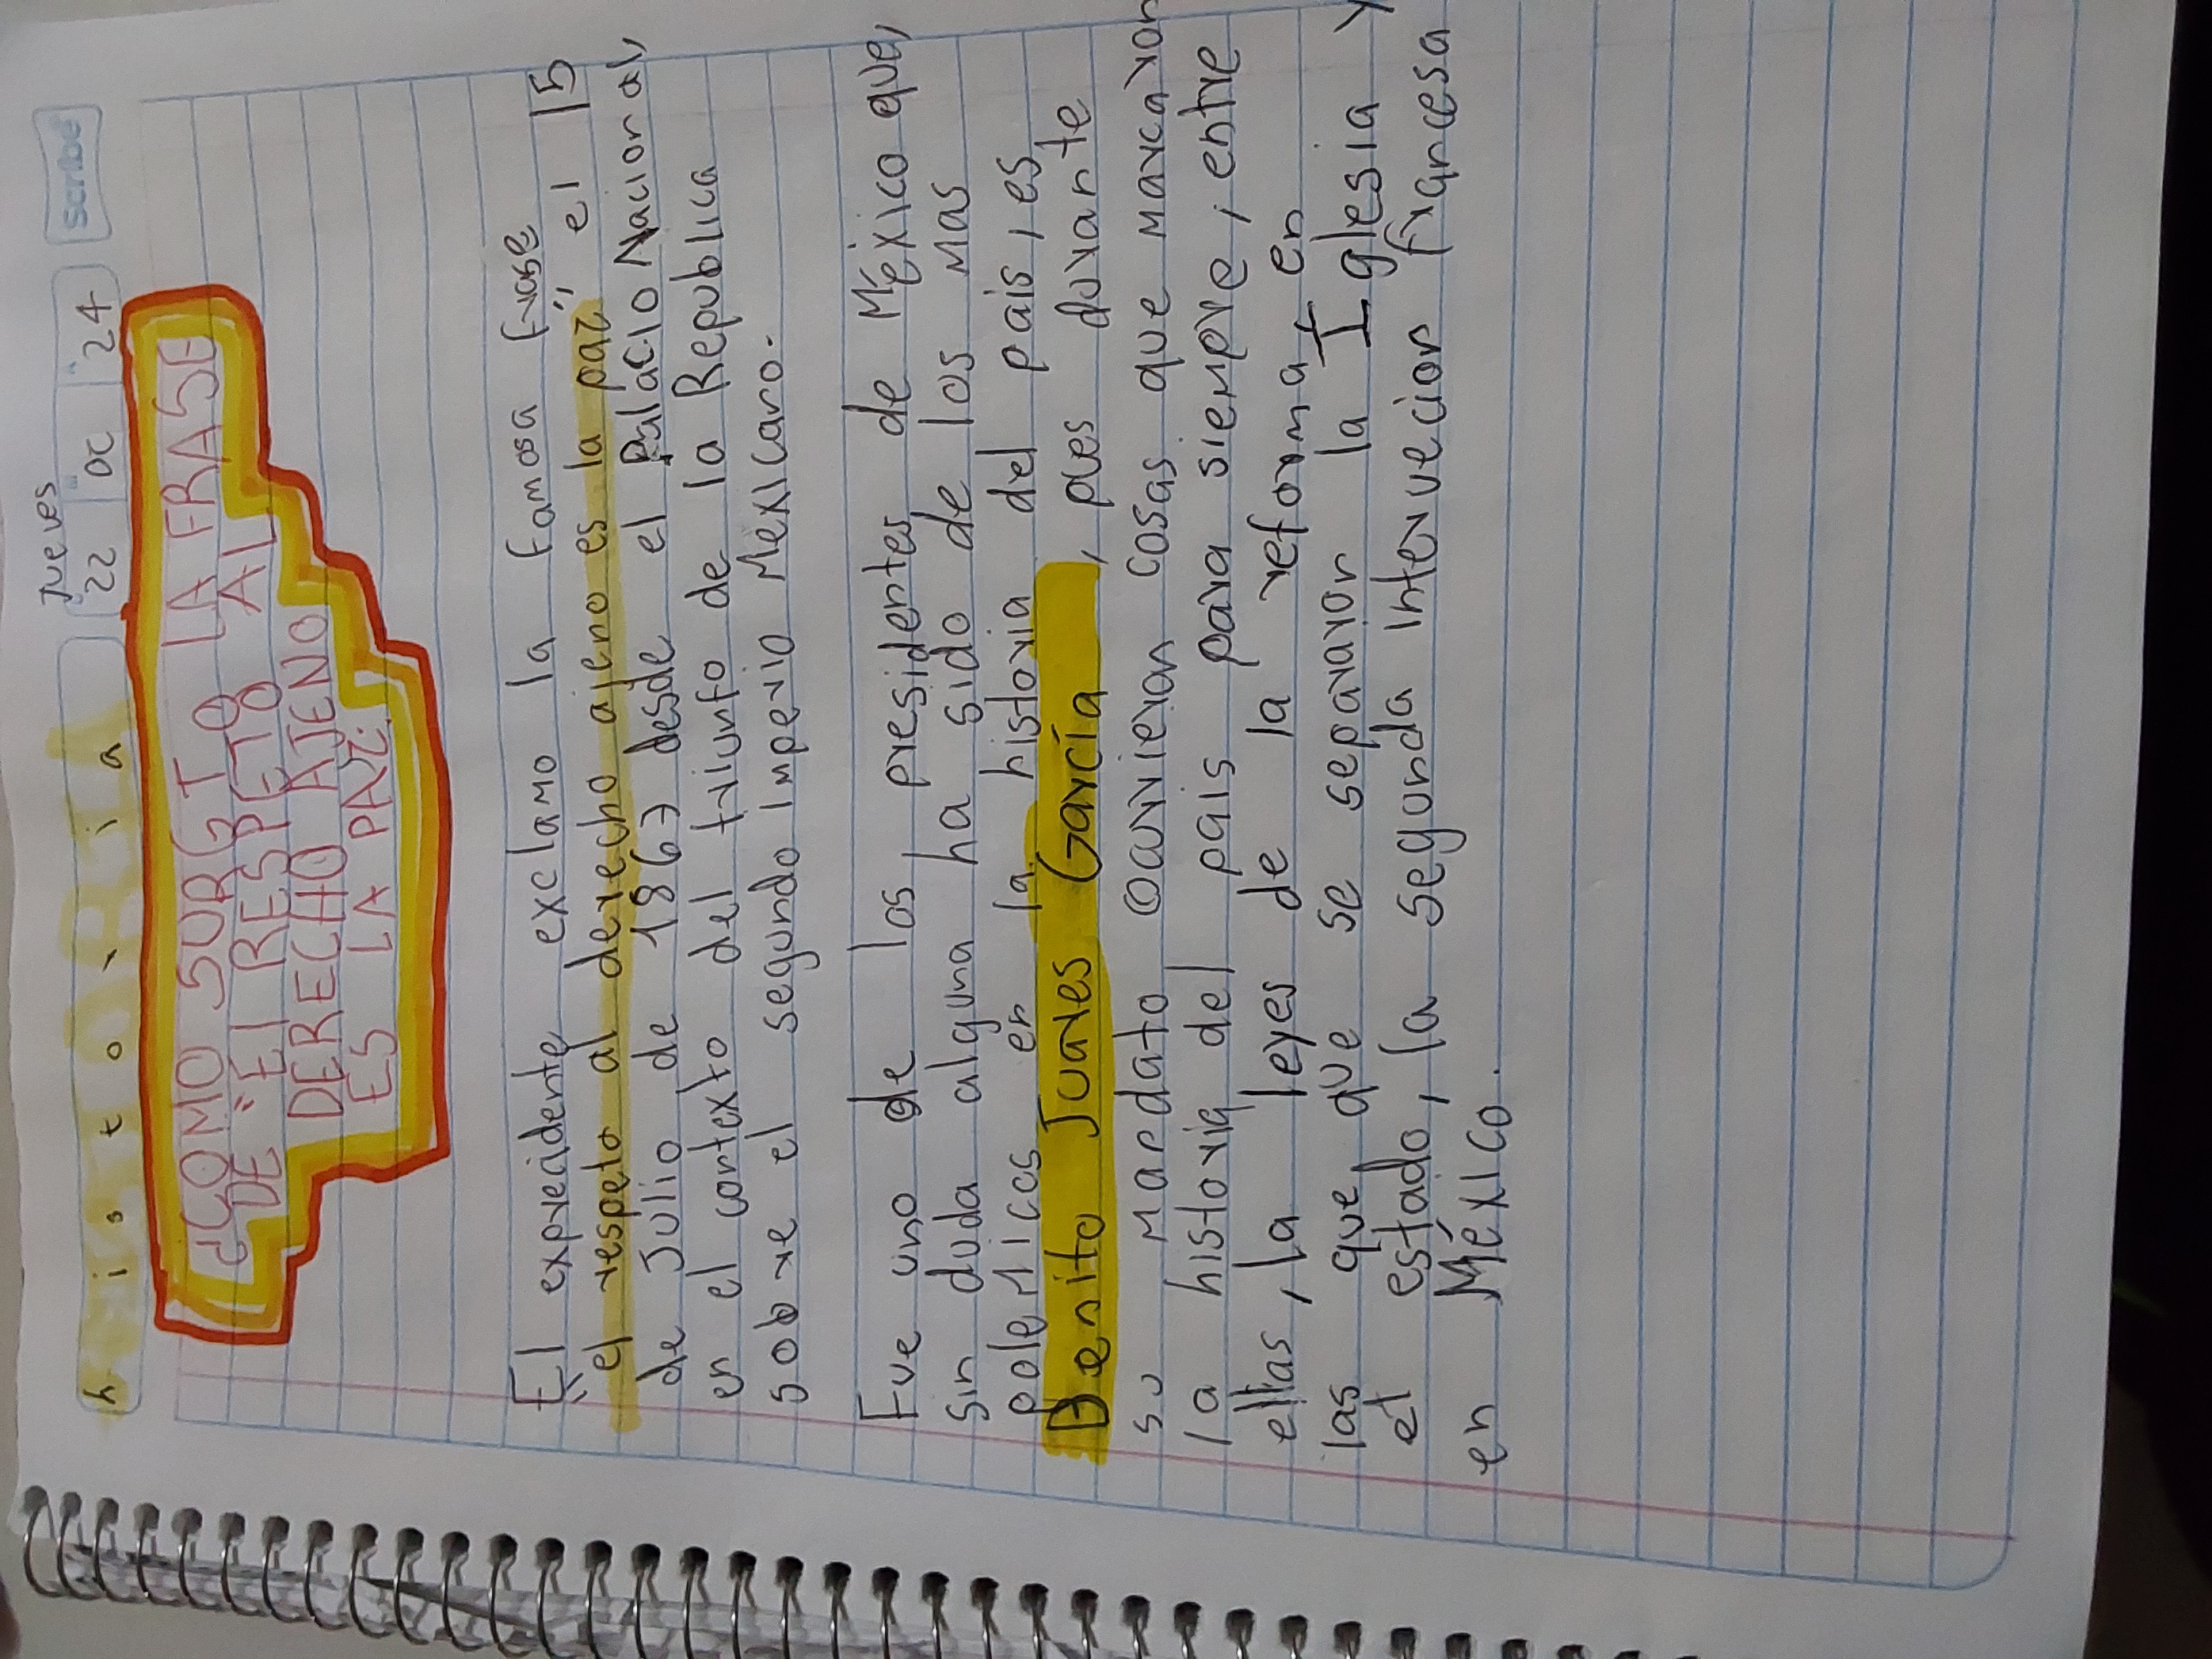 historia
Jueves
22 oc 24
scribe
¿COMO SURGI LA FRASE
DE "El RESPETO AL
DERECHO AJENO
ES LA PAZ.
El exprecidente exclamo la famosa frase
"el respeto al derecho ajeno es la paz" el 15
de Julio de 1867 desde el Palacio Nacional,
en el contexto del triunfo de la Republica
sobre el segundo Imperio Mexicano.
Fue uno de los presidentes de México que,
sin duda alguna ha sido de los mas
polemicos en la historia del pais, es
Benito Juares García, pues durante
su mandato ocurrieron cosas que marcaron
la historia del pais para siempre, entre
ellas, la leyes de la reforma en
las que que se separaron la Iglesia y
el estado, la segunda intervecion francesa
en México.